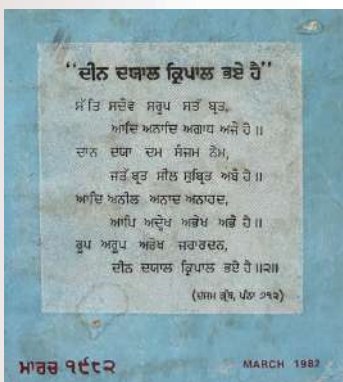 “ਦੀਨ ਦਯਾਲ ਕ੍ਰਿਪਾਲ ਭਏ ਹੈ”
ਸੱਤਿ ਸਦੈਵ ਸਰੂਪ ਸਤੰ ਬ੍ਰਤ,
ਆਦਿ ਅਨਾਦਿ ਅਗਾਧ ਅਜੈ ਹੈ ॥
ਦਾਨ ਦਯਾ ਦਮ ਸੰਜਮ ਨੇਮ,
ਜਤੰ ਬ੍ਰਤ ਸੀਲ ਸੁਬ੍ਰਿਤ ਅਬੈ ਹੈ ॥
ਆਦਿ ਅਨੀਲ ਅਨਾਦ ਅਨਾਹਦ,
ਆਪਿ ਅਦ੍ਵੇਖ ਅਭੇਖ ਅਭੈ ਹੈ ॥
ਰੂਪ ਅਰੂਪ ਅਰੇਖ ਜਰਾਰਦਨ,
ਦੀਨ ਦਯਾਲ ਕ੍ਰਿਪਾਲ ਭਏ ਹੈ ॥੨॥
(ਦਸਮ ਗ੍ਰੰਥ, ਪੰਨਾ ੭੧੨)
ਮਾਰਚ ੧੯੮੨
MARCH 1982